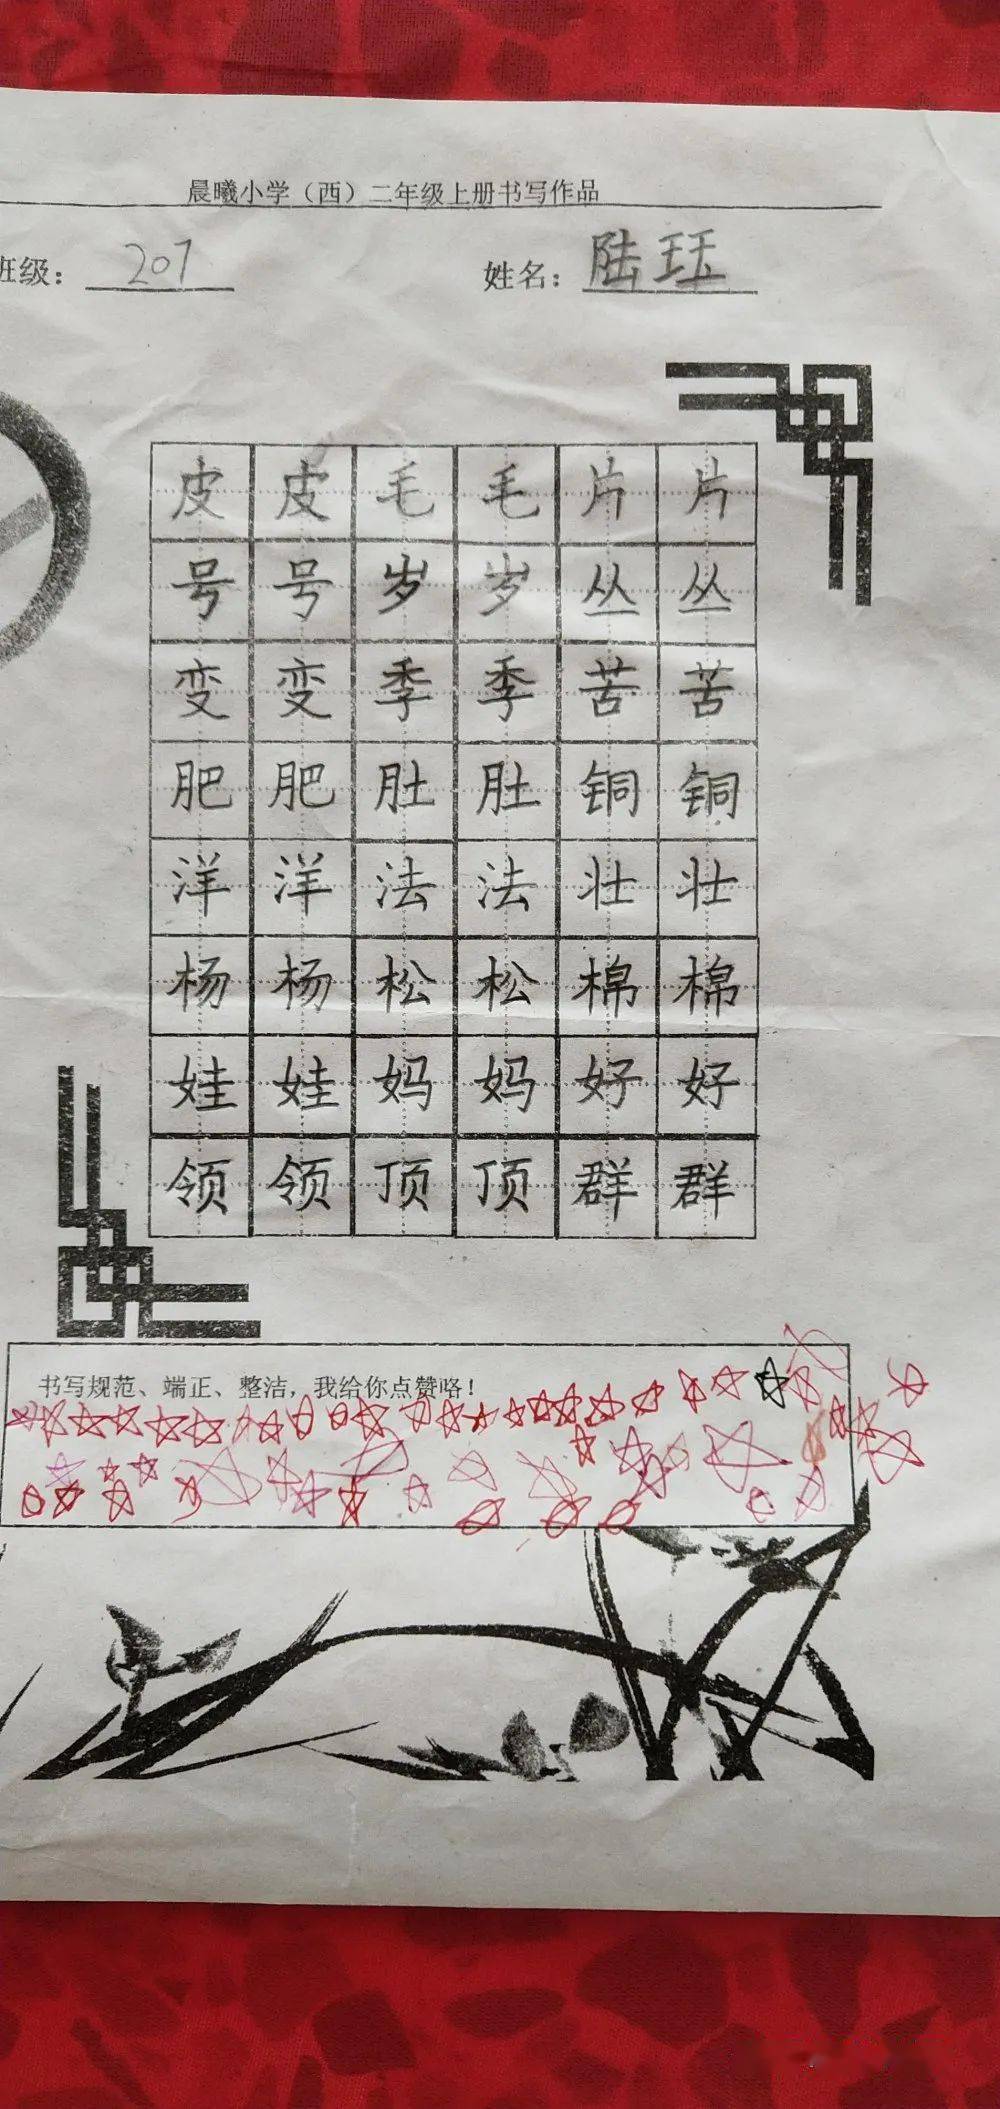 晨曦小学（西）二年级上册书写作品
班级：207 姓名：陆珏
皮皮毛毛片片
号号岁岁丛丛
变变季季苦苦
肥肥肚肚铜铜
洋洋法法壮壮
杨杨松松棉棉
娃娃妈妈好好
领领顶顶群群
书写规范、端正、整洁，我给你点赞咯！